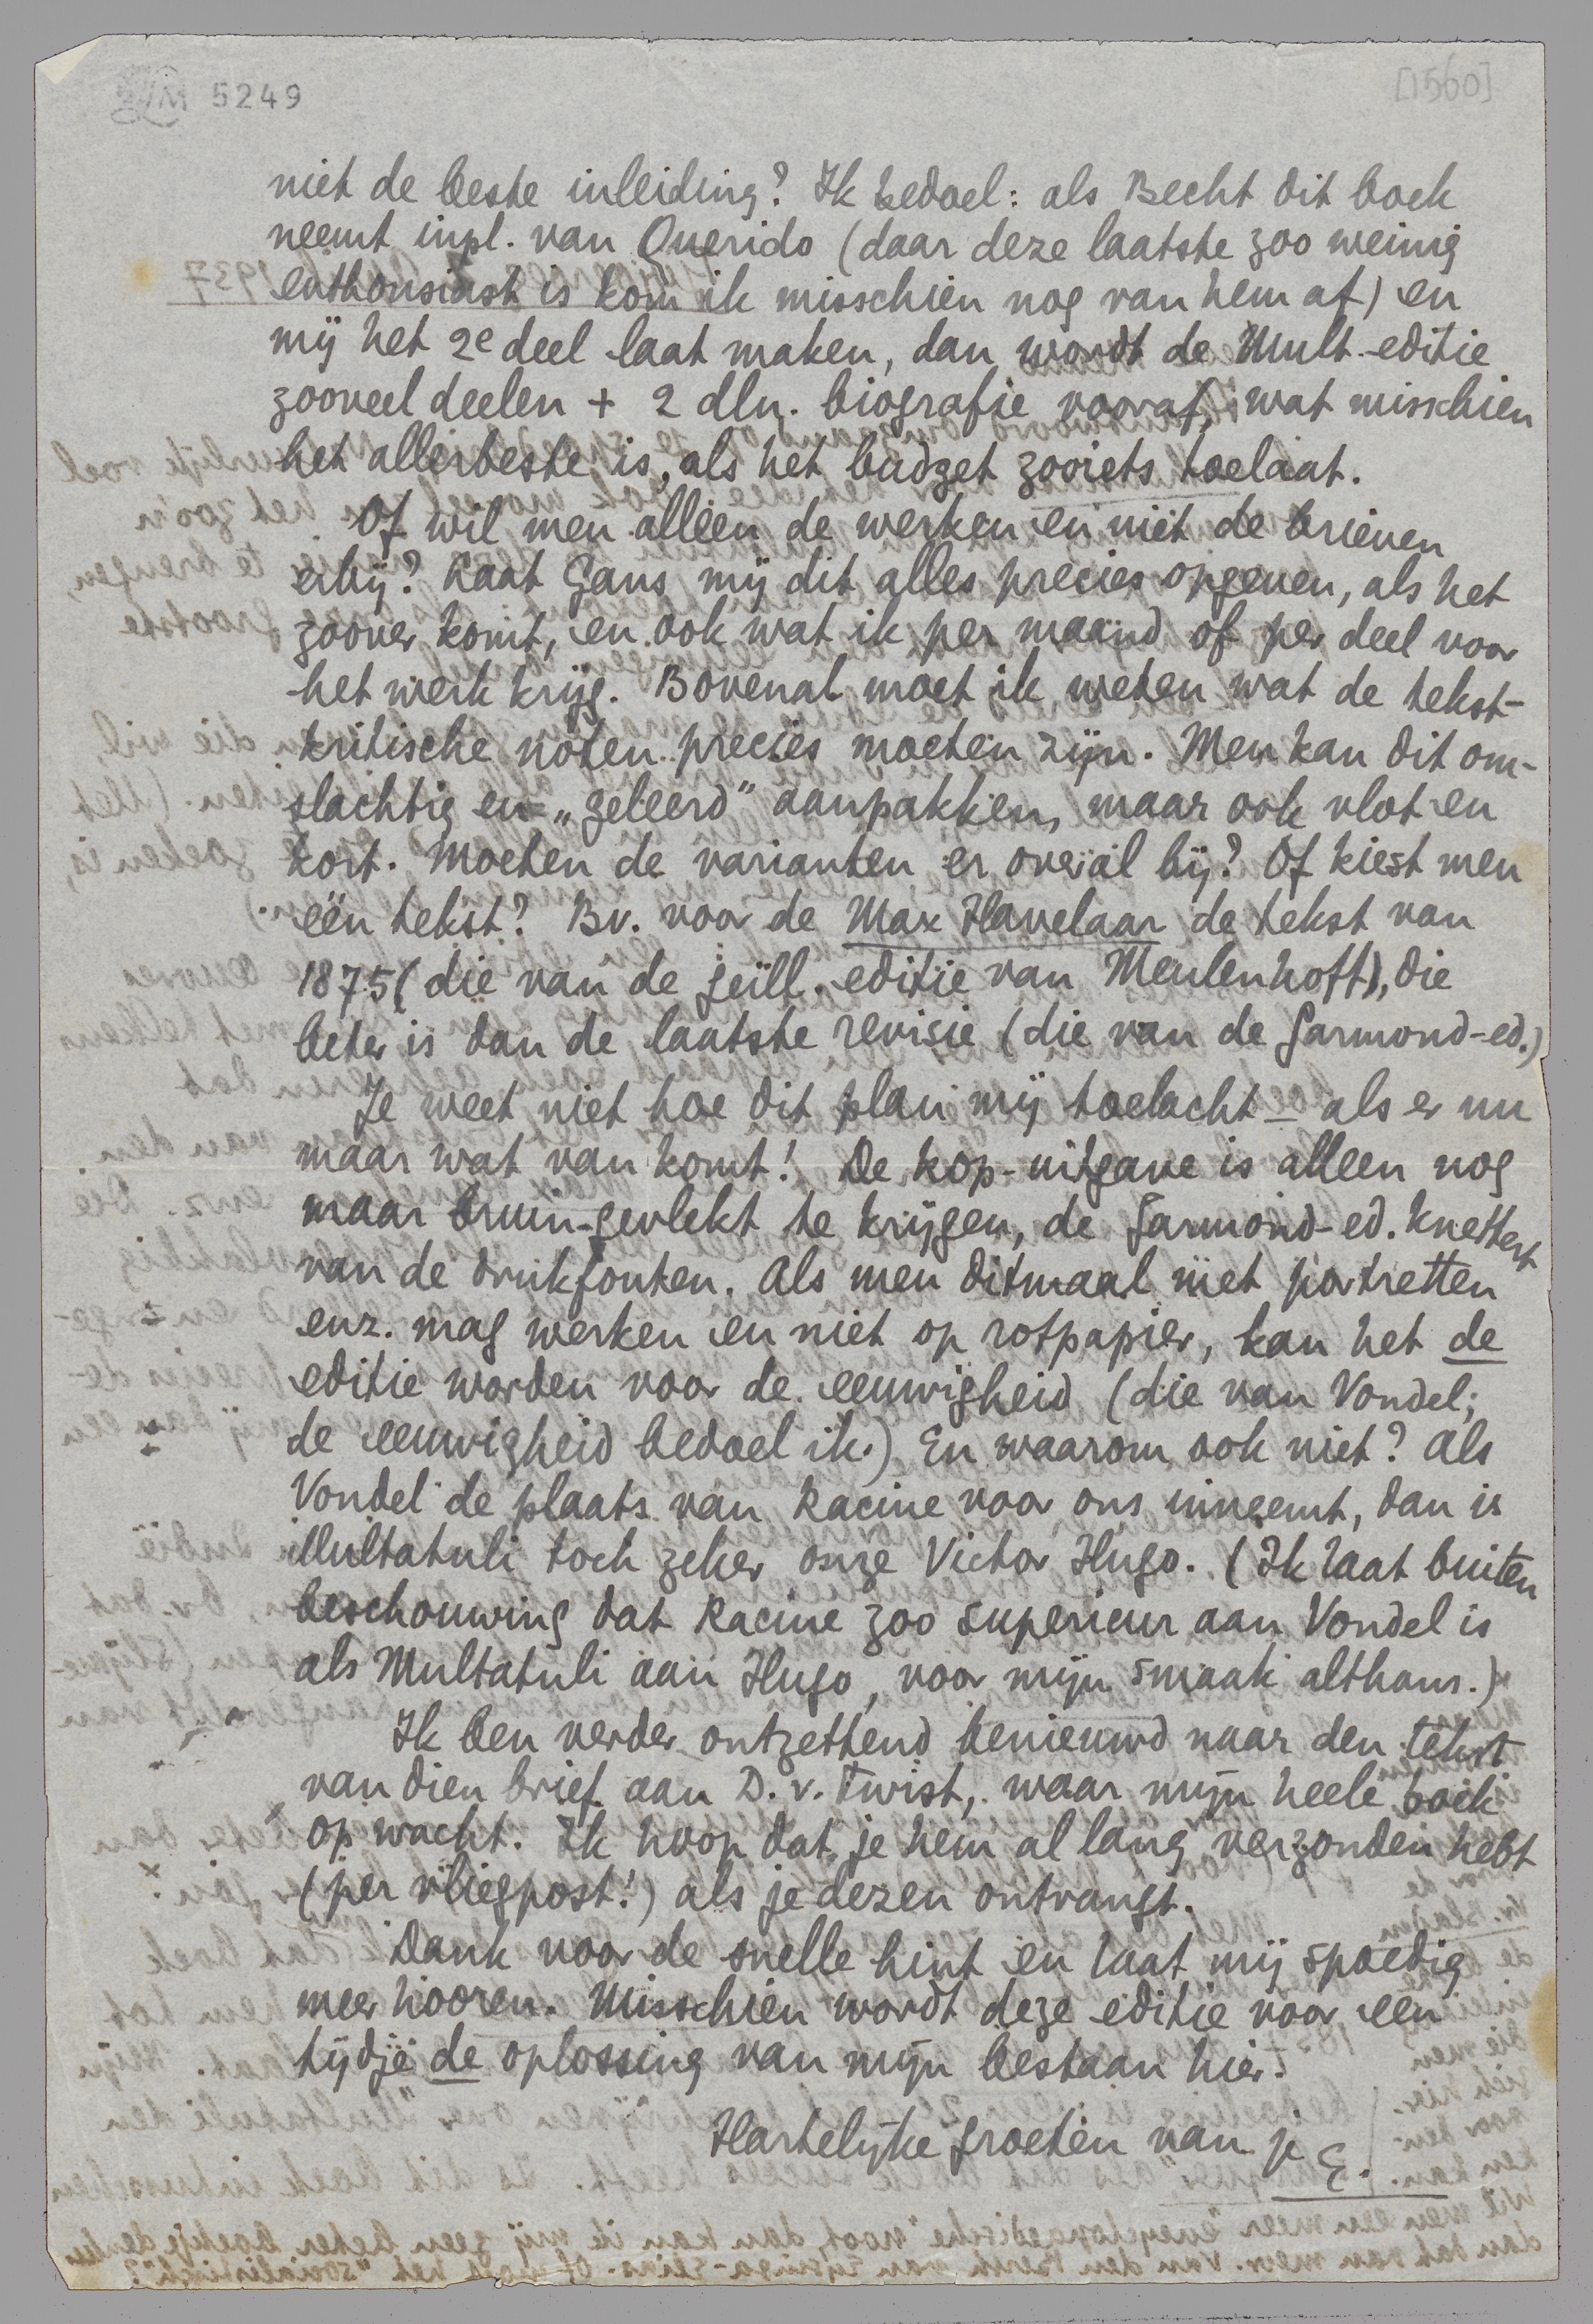 LM 5249
[1560]
niet de beste inleiding? Ik bedoel: als Becht dit boek
neemt inpl. van Querido (daar deze laatste zoo weinig
enthousiast is kom ik misschien nog van hem af) en
mij het 2e deel laat maken, dan wordt de Mult.-editie
zooveel deelen + 2 dln. biografie vooraf, wat misschien
het allerbeste is, als het budget zooiets toelaat.
Of wil men alleen de werken en niet de brieven
erbij? Laat Gans mij dit alles precies opgeven, als het
zoover komt, en ook wat ik per maand of per deel voor
het werk krijg. Bovenal moet ik weten wat de tekst-
kritische noten precies moeten zijn. Men kan dit om-
slachtig en „geleerd” aanpakken, maar ook vlot en
kort. Moeten de varianten er overal bij? Of kiest men
één tekst? Bv. voor de Max Havelaar de tekst van
1875 (die van de geïll. editie van Meulenhoff), die
beter is dan de laatste revisie (die van de Garmond-ed.)
Je weet niet hoe dit plan mij toelacht — als er nu
maar wat van komt! De kop-uitgave is alleen nog
maar bruin-gevlekt te krijgen, de Garmond-ed. knettert
van de drukfouten. Als men ditmaal met portretten
enz. mag werken en niet op rotpapier, kan het de
editie worden voor de eeuwigheid (die van Vondel;
de eeuwigheid bedoel ik.) En waarom ook niet? Als
Vondel de plaats van Racine voor ons inneemt, dan is
Multatuli toch zeker onze Victor Hugo. (Ik laat buiten
beschouwing dat Racine zoo superieur aan Vondel is
als Multatuli aan Hugo, voor mijn smaak althans.)
Ik ben verder ontzettend benieuwd naar den tekst
van dien brief aan D. v. Twist, waar mijn heele boek
op wacht. Ik hoop dat je hem al lang verzonden hebt
(per vliegpost!) als je dezen ontvangt.
Dank voor de snelle hint en laat mij spoedig
meer hooren. Misschien wordt deze editie voor een
tijdje de oplossing van mijn bestaan hier.
Hartelijke groeten van je
E.